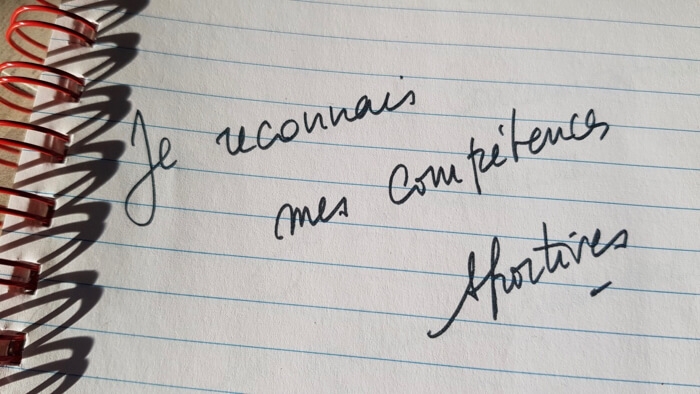 Je reconnais
mes compétences
sportives